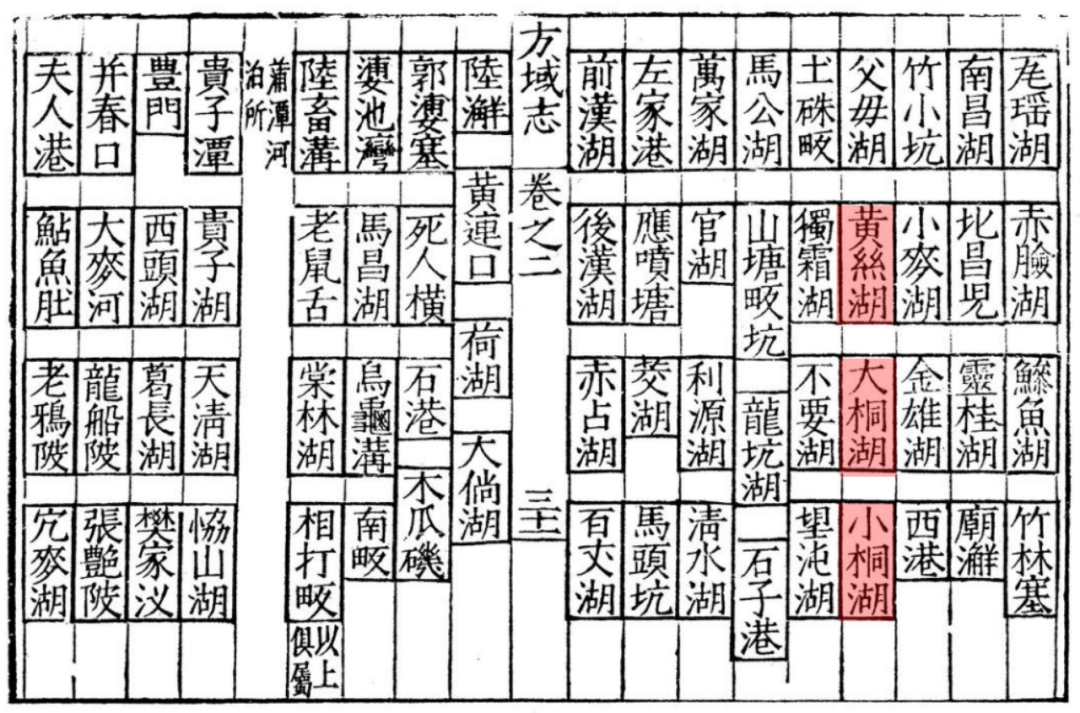 尨瑶湖 赤臉湖 鰺魚湖 竹林塞
南昌湖 北昌児 靈桂湖 廟澥
竹小坑 小麥湖 金雄湖 西港
父毋湖 黄絲湖 大桐湖 小桐湖
土硃畈 獨霜湖 不要湖 望沌湖
馬公湖 山塘畈坑 龍坑湖 石子港
萬家湖 官湖 利源湖 淸水湖
左家港 應噴塘 茭湖 馬頭坑
前漢湖 後漢湖 赤占湖 百丈湖
方域志 卷之二 三十一
陸澥 黄連口 荷湖 大倘湖
郭塞 死人橫 石港 木瓜磯
池灣 馬昌湖 烏龜溝 南畈
陸畜溝 老鼠舌 棠林湖 相打畈 以上俱屬
蕭潭河泊所
貴子潭 貴子湖 天淸湖 恊山湖
豐門 西頭湖 葛長湖 樊家汊
幷春口 大麥河 龍船陂 張艷陂
夫人港 鮎魚肚 老鴉陂 穴麥湖